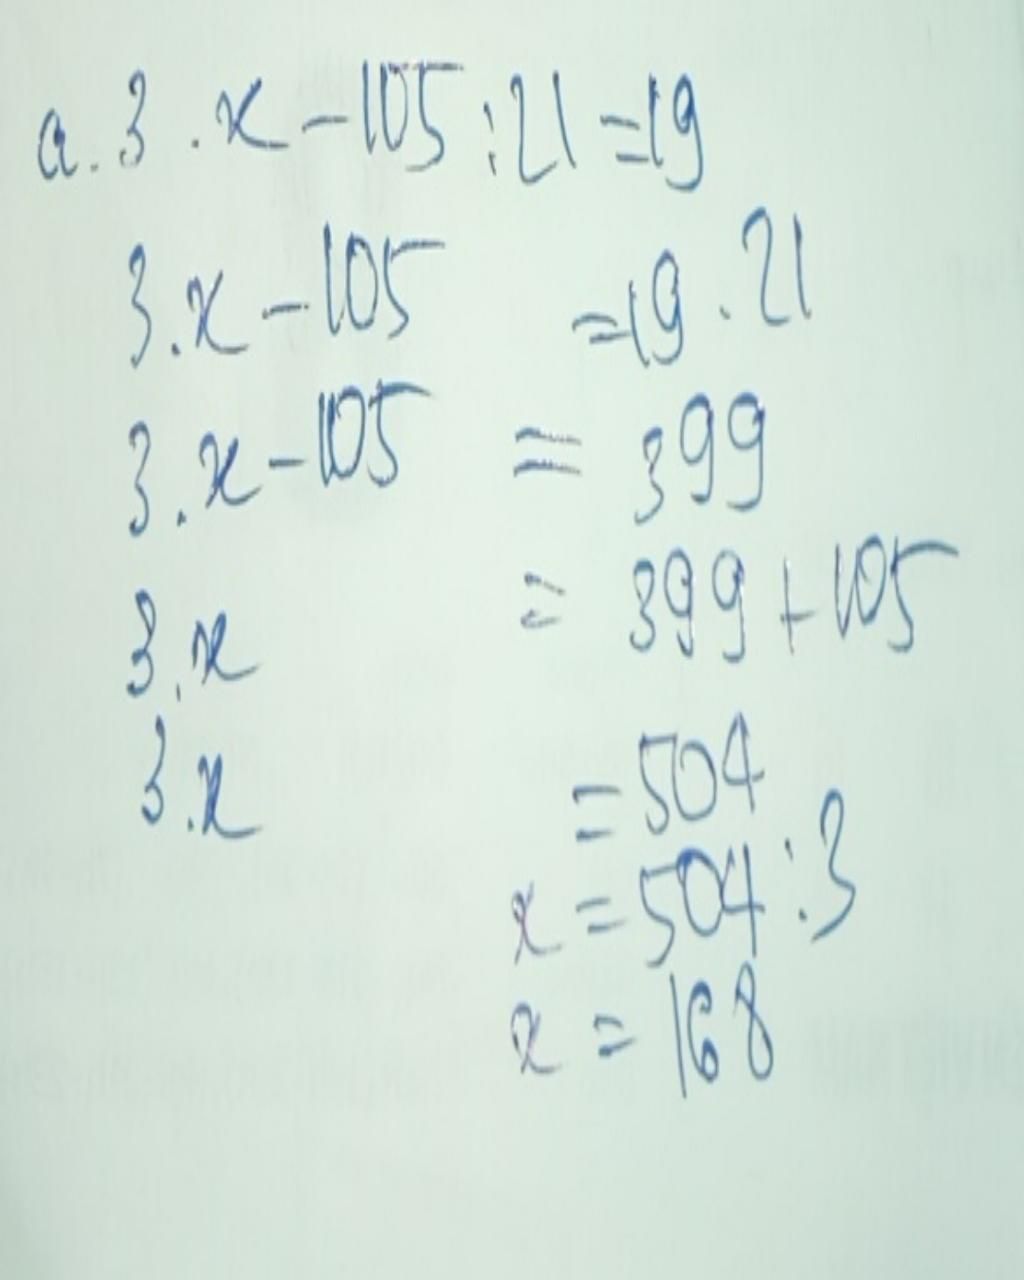 a. 3 . x - 105 : 21 = 19
3 . x - 105 = 19 . 21
3 . x - 105 = 399
3 . x = 399 + 105
3 . x = 504
x = 504 : 3
x = 168